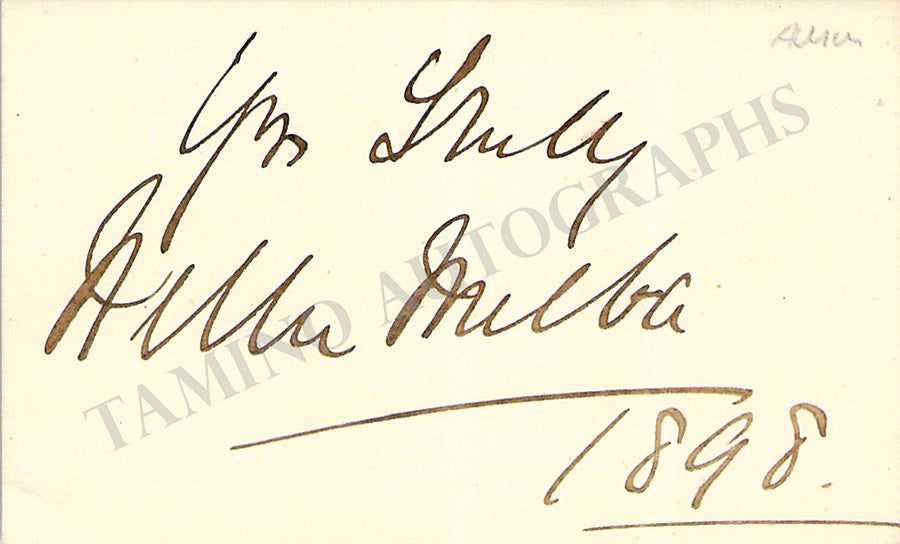 Yrs Truly
Nellie Melba
1898.
TAMINO AUTOGRAPHS